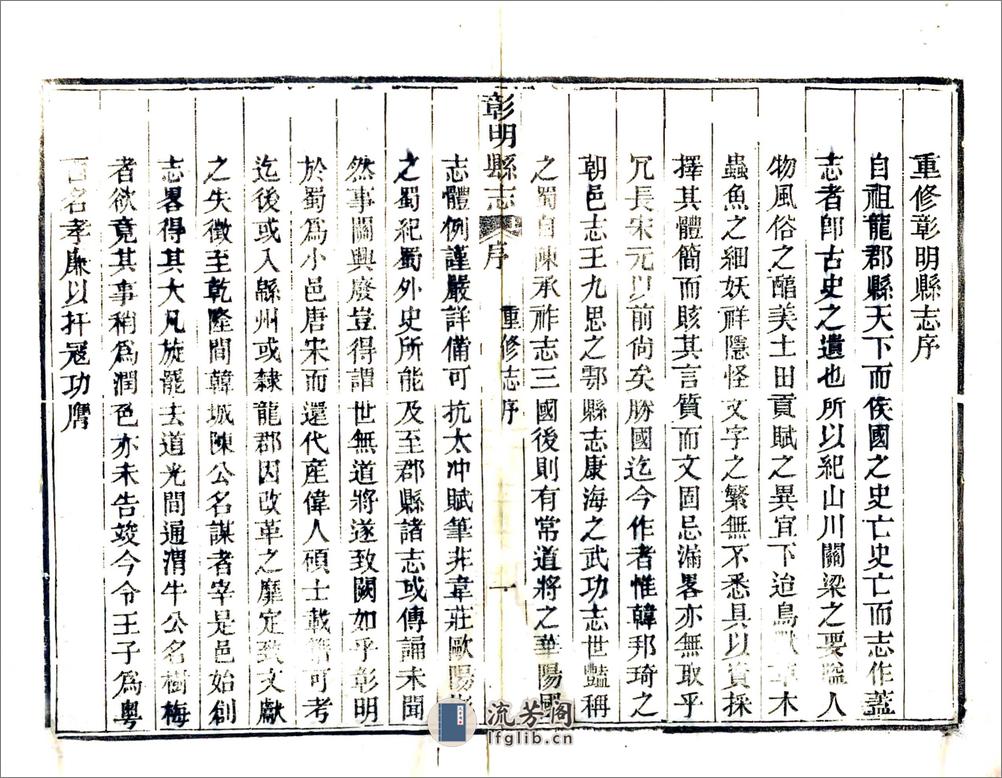 重修彰明縣志序
自祖龍郡縣天下而侯國之史亡史亡而志作蓋
志者卽古史之遺也所以紀山川關梁之要隘人
物風俗之醕美土田貢賦之異宜下迨鳥獸草木
蟲魚之細妖祥隱怪文字之繁無不悉具以資採
擇其體簡而賅其言質而文固忌滿畧亦無取乎
冗長宋元以前尙矣勝國迄今作者惟韓邦琦之
朝邑志王九思之鄠縣志康海之武功志世豔稱
之蜀自陳承祚志三國後則有常道將之華陽國
彰明縣志 序 重修志序 一
志體例謹嚴詳備可抗太冲賦筆非韋莊歐陽
之蜀紀蜀外史所能及至郡縣諸志或傳誦未聞
然事關興廢豈得謂世無道將遂致闕如乎彰明
於蜀爲小邑唐宋而還代產偉人碩士載籍可考
迄後或入緜州或隸龍郡因改革之靡定致文獻
之失徵至乾隆間韓城陳公名謀者宰是邑始創
志畧得其大凡旋罷去道光間通渭牛公名樹梅
者欲竟其事稍爲潤色亦未告竣今令王子爲粵
西名孝廉以扞寇功膺
流芳阁
lfglib.cn